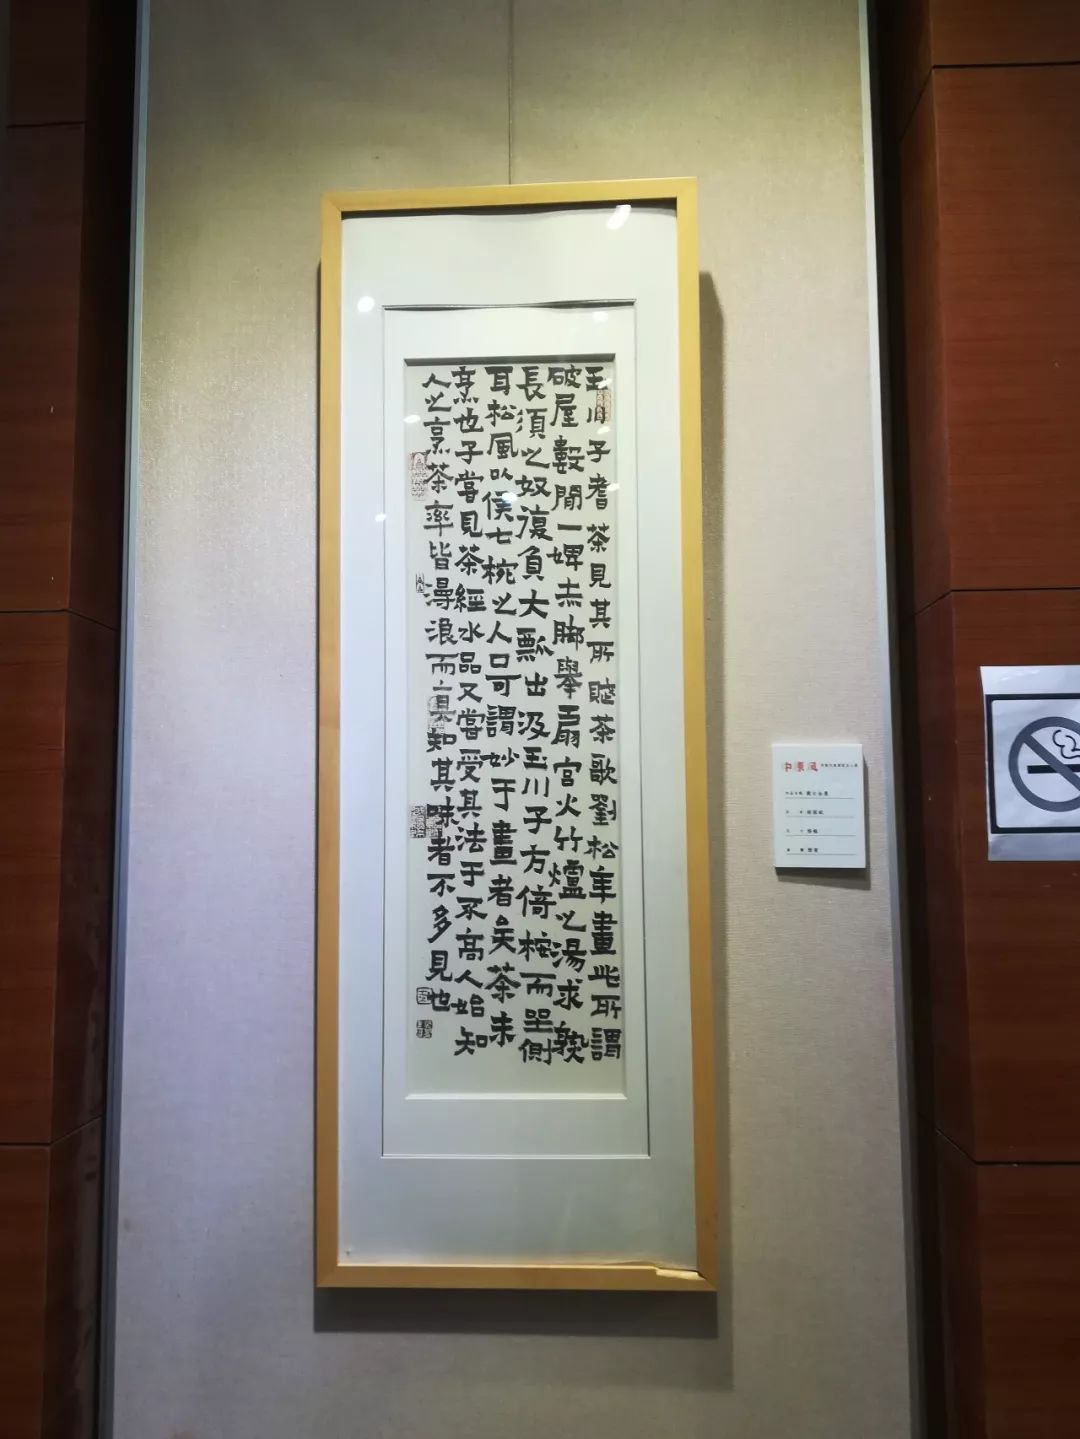 玉川子耆茶見其所賦茶歌劉松年畫此所謂
破屋數間一婢赤脚舉扇宮火竹爐之湯求熟
長須之奴復負大瓢出汲玉川子方倚桉而坐側
耳松風以侯七椀之人口可謂妙于畫者矣茶未
烹也子嘗見茶經水品又嘗受其法于不高人始知
人之烹茶率皆漫浪而真知其味者不多見也